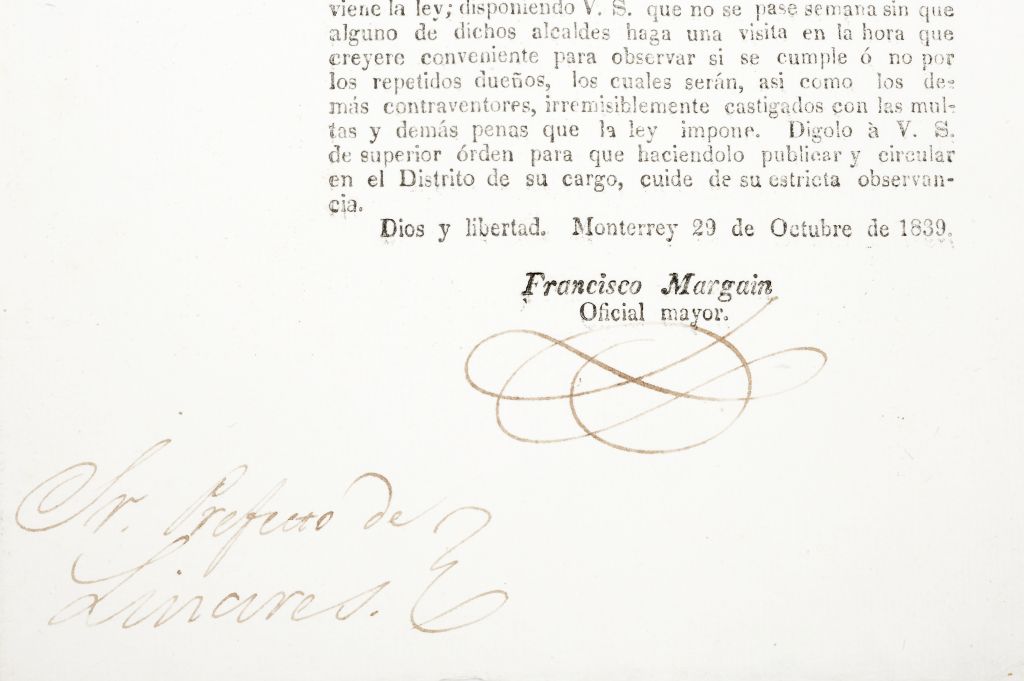 viene la ley; disponiendo V. S. que no se pase semana sin que
alguno de dichos alcaldes haga una visita en la hora que
creyere conveniente para observar si se cumple ó no por
los repetidos dueños, los cuales serán, asi como los de-
más contraventores, irremisiblemente castigados con las mul-
tas y demás penas que la ley impone. Digolo à V. S.
de superior órden para que haciendolo publicar y circular
en el Distrito de su cargo, cuide de su estricta observan-
cia.
Dios y libertad. Monterrey 29 de Octubre de 1839.
Francisco Margain
Oficial mayor.
Sr. Prefecto de
Linares.